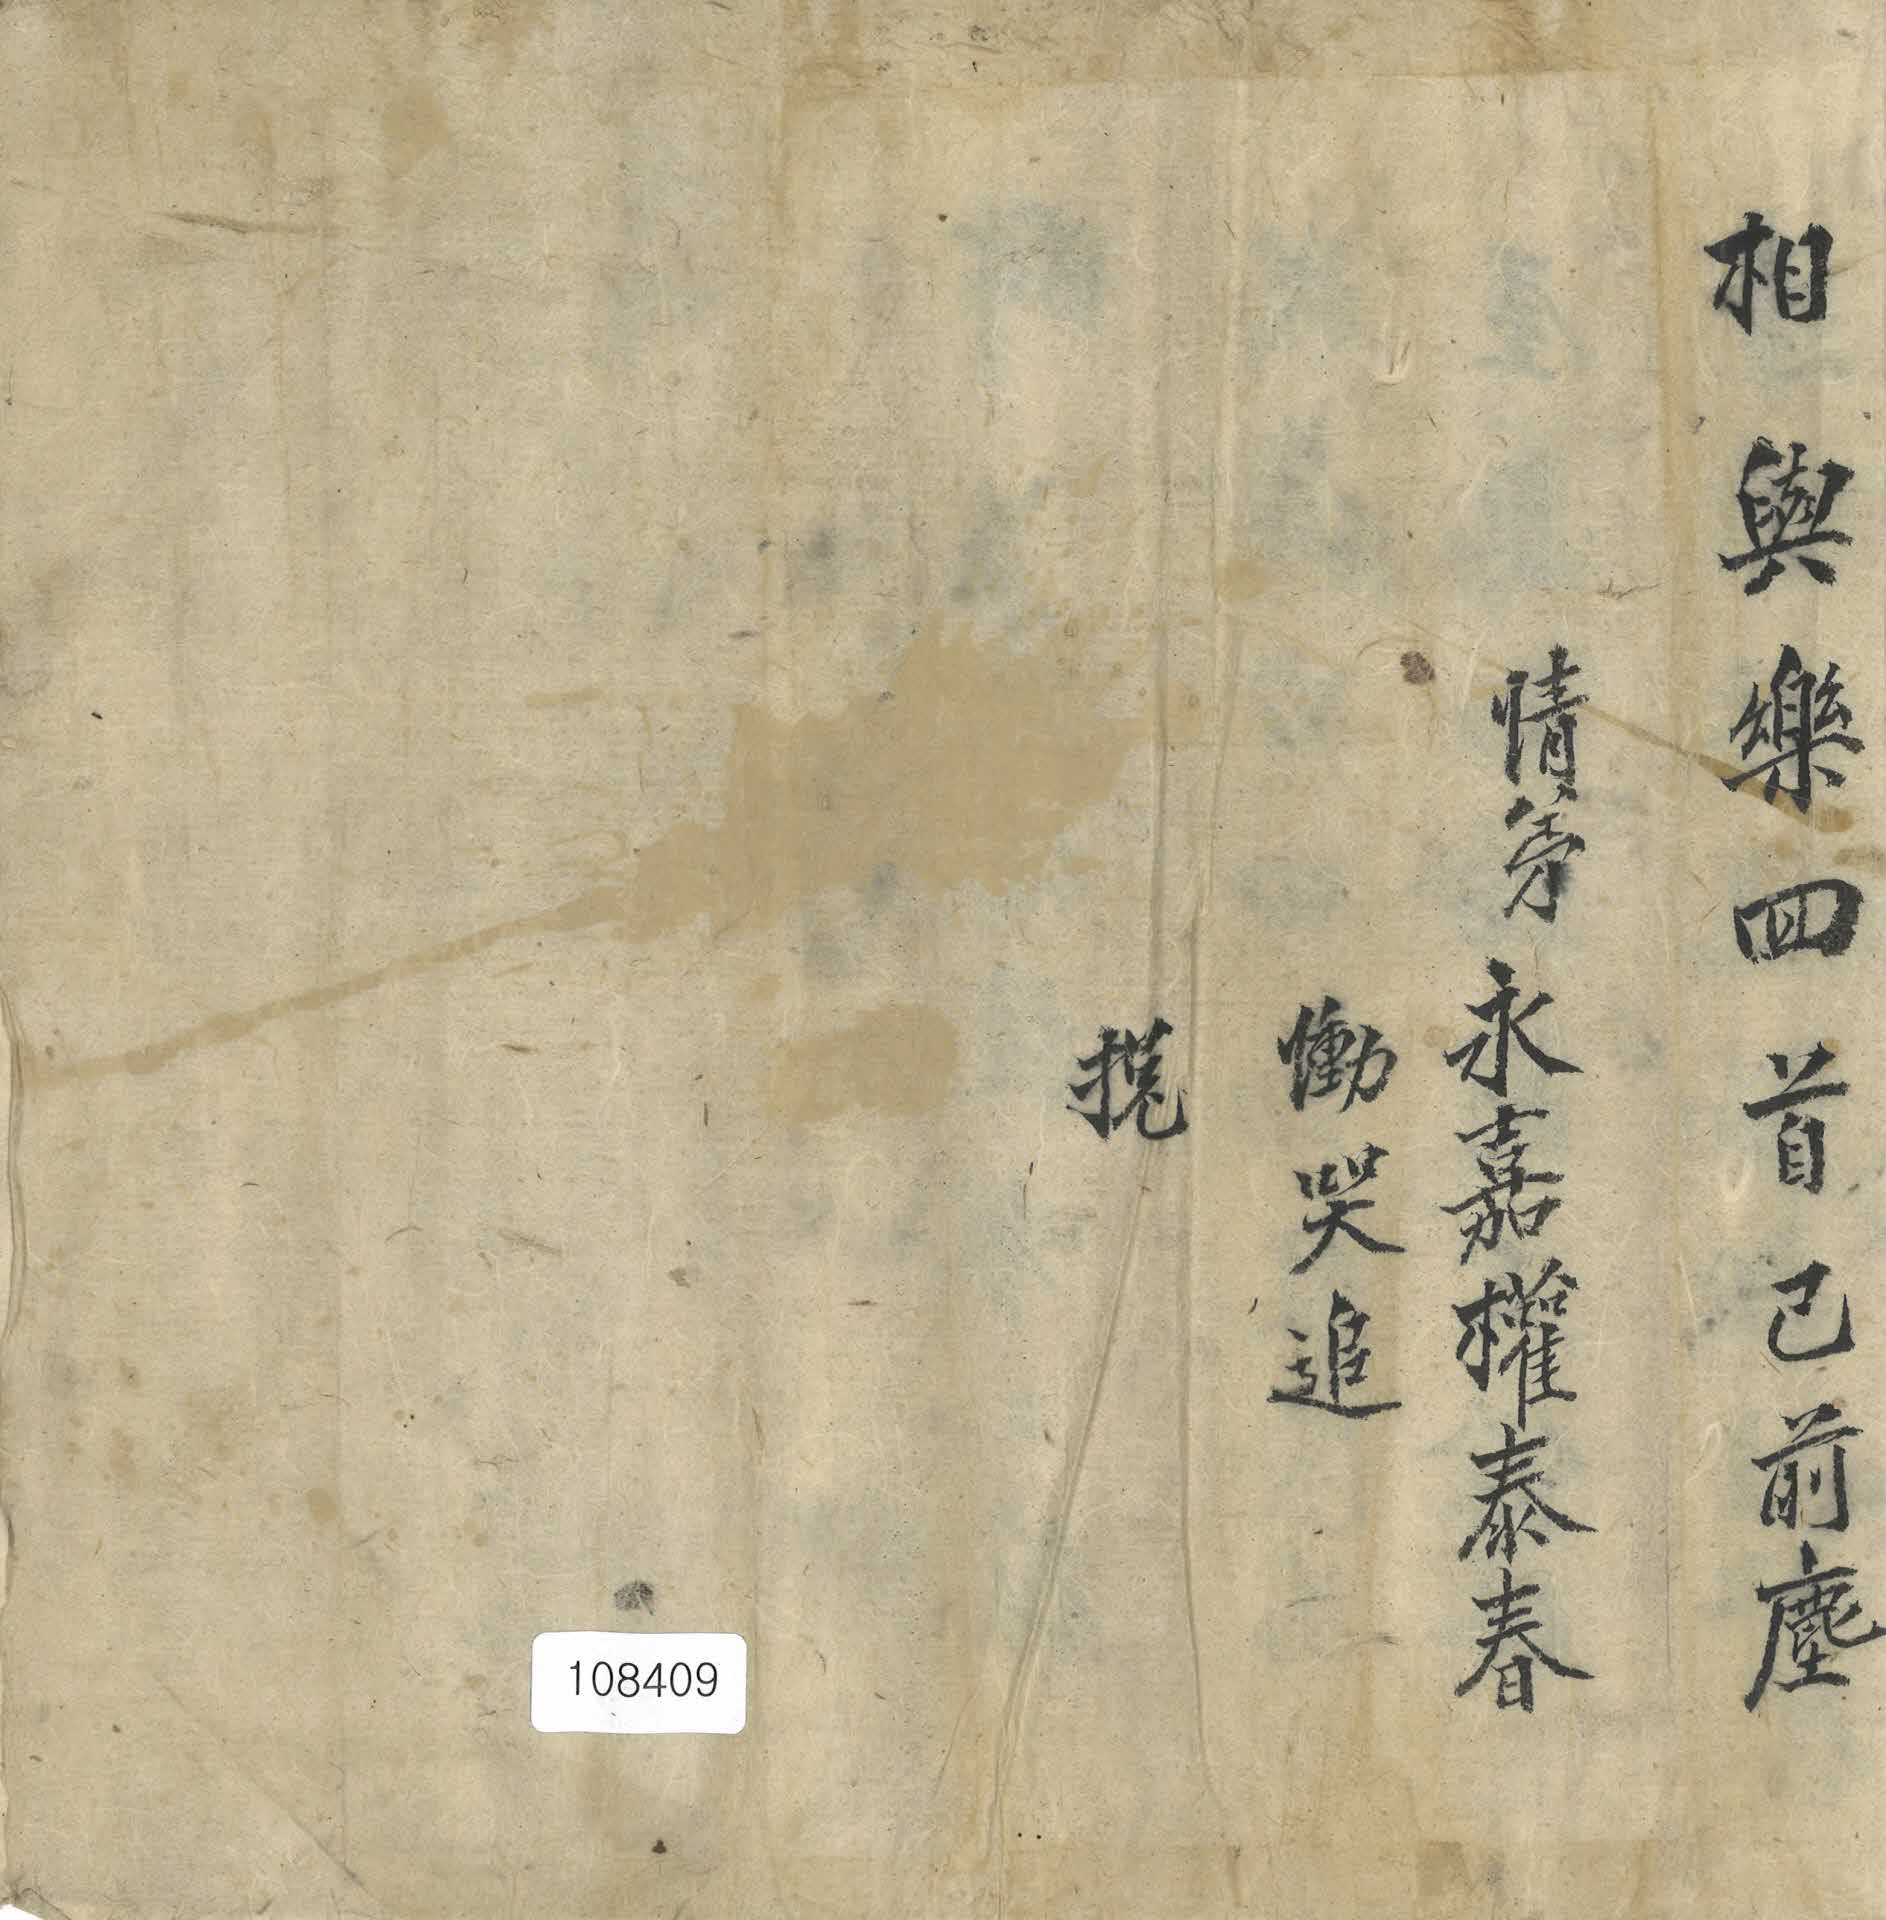 相與樂四首已前塵
情弟永嘉權泰春
慟哭追
挽
108409